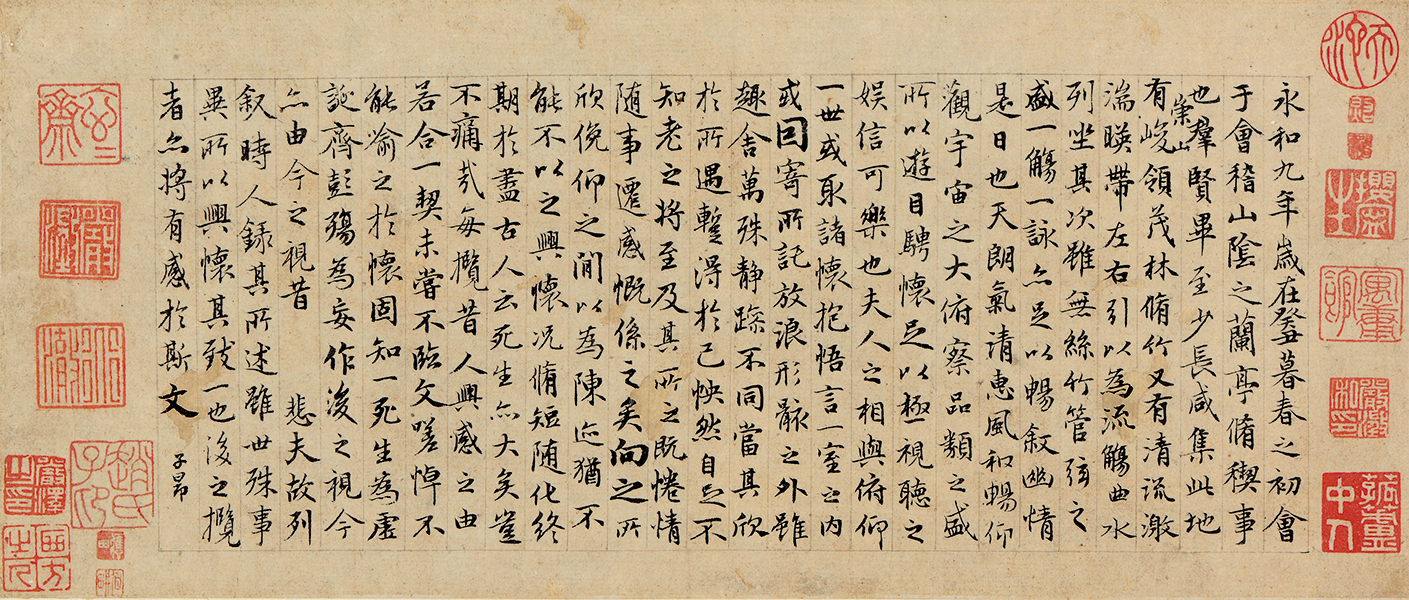 永和九年歲在癸丑暮春之初會
于會稽山陰之蘭亭脩稧事
也羣賢畢至少長咸集此地
有崇山峻領茂林脩竹又有清流激
湍暎帶左右引以為流觴曲水
列坐其次雖無絲竹管弦之
盛一觴一詠亦足以暢敘幽情
是日也天朗氣清惠風和暢仰
觀宇宙之大俯察品類之盛
所以遊目騁懷足以極視聽之
娛信可樂也夫人之相與俯仰
一世或取諸懷抱悟言一室之內
或因寄所託放浪形骸之外雖
趣舍萬殊靜躁不同當其欣
於所遇蹔得於己怏然自足不
知老之將至及其所之既惓情
随事遷感慨係之矣向之所
欣俛仰之閒以為陳迹猶不
能不以之興懷況脩短随化終
期於盡古人云死生亦大矣豈
不痛哉每攬昔人興感之由
若合一契未嘗不臨文嗟悼不
能喻之於懷固知一死生為虛
誕齊彭殤為妄作後之視今
亦由今之視昔 悲夫故列
敘時人錄其所述雖世殊事
異所以興懷其致一也後之攬
者亦將有感於斯文
子昂
趙氏子昂
嚴澤之印